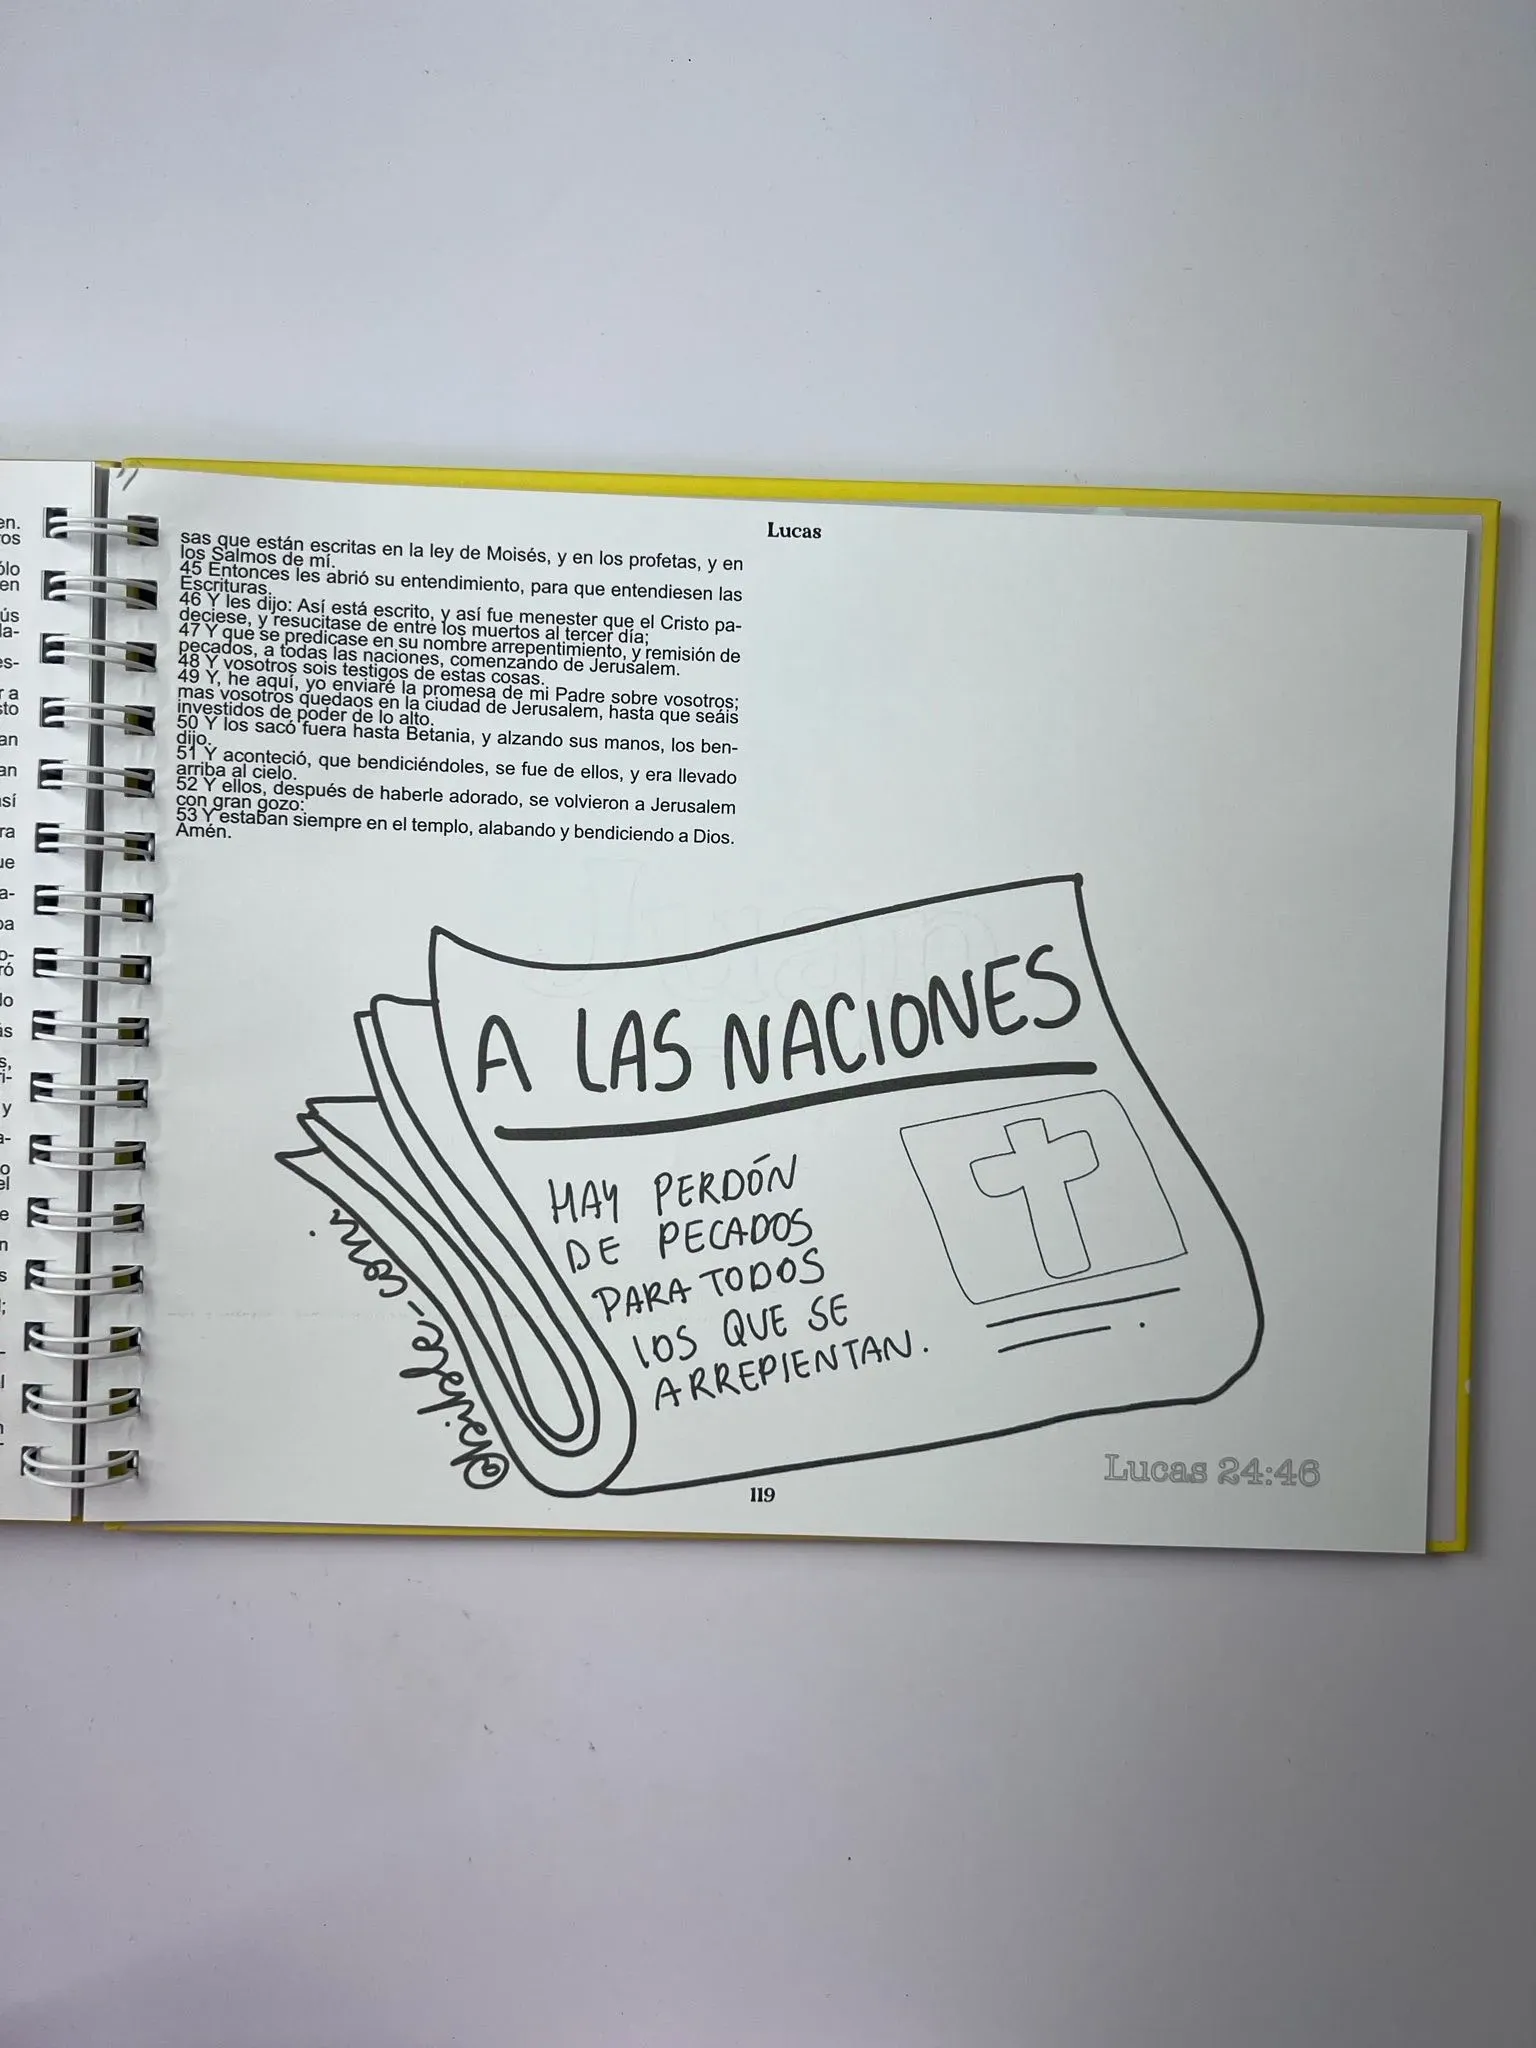 Lucas
sas que están escritas en la ley de Moisés, y en los profetas, y en
los Salmos de mí.
45 Entonces les abrió su entendimiento, para que entendiesen las
Escrituras.
46 Y les dijo: Así está escrito, y así fue menester que el Cristo pa-
deciese, y resucitase de entre los muertos al tercer día;
47 Y que se predicase en su nombre arrepentimiento, y remisión de
pecados, a todas las naciones, comenzando de Jerusalem.
48 Y vosotros sois testigos de estas cosas.
49 Y, he aquí, yo enviaré la promesa de mi Padre sobre vosotros;
mas vosotros quedaos en la ciudad de Jerusalem, hasta que seáis
investidos de poder de lo alto.
50 Y los sacó fuera hasta Betania, y alzando sus manos, los ben-
dijo.
51 Y aconteció, que bendiciéndoles, se fue de ellos, y era llevado
arriba al cielo.
52 Y ellos, después de haberle adorado, se volvieron a Jerusalem
con gran gozo:
53 Y estaban siempre en el templo, alabando y bendiciendo a Dios.
Amén.
A LAS NACIONES
HAY PERDÓN
DE PECADOS
PARA TODOS
LOS QUE SE
ARREPIENTAN.
Lucas 24:46
119